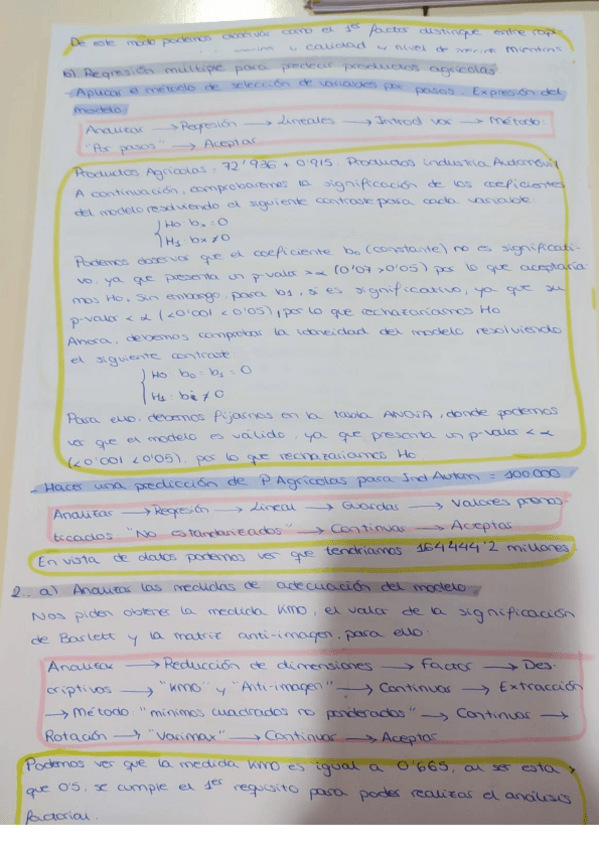 De este modo podemos observar como el 1er factor distingue entre
calidad y nivel de mientras
b) Regresión múltiple para predecir productos agrícolas
- Aplicar el método de selección de variables por pasos. Expresión del
modelo.
Analizar → Regresión → Lineales → Introd var → Método:
"Por pasos" → Aceptar
Productos Agrícolas = 72'936 + 0'915 · Productos industria Automóvil
A continuación, comprobaremos la significación de los coeficientes
del modelo resolviendo el siguiente contraste para cada variable:
H0: bx = 0
H1: bx ≠ 0
Podemos observar que el coeficiente b0 (constante) no es significati-
vo, ya que presenta un p-valor > α (0'07 > 0'05) por lo que aceptaría-
mos H0, sin embargo, para b1, si es significativo, ya que su
p-valor < α (<0'001 < 0'05), por lo que rechazaríamos H0
Ahora, debemos comprobar la idoneidad del modelo resolviendo
el siguiente contraste:
H0: b0 = b1 = 0
H1: bi ≠ 0
Para ello, debemos fijarnos en la tabla ANOVA, donde podemos
ver que el modelo es válido, ya que presenta un p-valor < α
(<0'001 < 0'05), por lo que rechazaríamos H0
- Hacer una predicción de P Agrícolas para Ind Autom = 100000
Analizar → Regresión → Lineal → Guardar → Valores pronos-
ticados "No estandarizados" → Continuar → Aceptar
En vista de datos podemos ver que tendríamos 164444'2 millones.
2. a) Analizar las medidas de adecuación del modelo.
Nos piden obtener la medida KMO, el valor de la significación
de Barlett y la matriz anti-imagen, para ello:
Analizar → Reducción de dimensiones → Factor → Des-
criptivos → "KMO" y "Anti-imagen" → Continuar → Extracción
→ Método: "mínimos cuadrados no ponderados" → Continuar →
Rotación → "Varimax" → Continuar → Aceptar
Podemos ver que la medida KMO es igual a 0'665, al ser esta >
que 0'5, se cumple el 1er requisito para poder realizar el análisis
factorial.